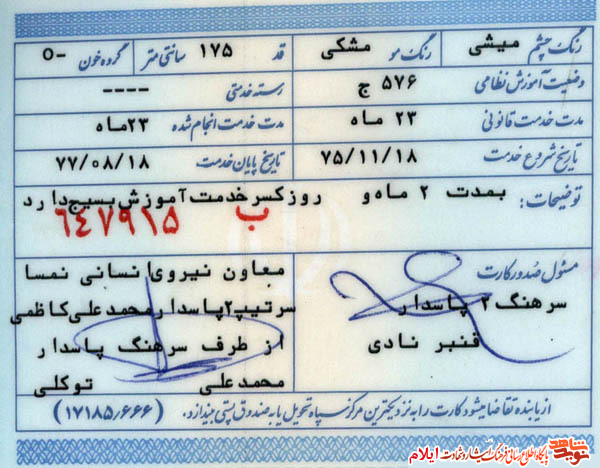 رنگ چشم میشی رنگ مو مشکی قد ۱۷۵ سانتی متر گروه خون O-
وضعیت آموزش نظامی ۵۷۶ ج رسته خدمتی ----
مدت خدمت قانونی ۲۳ ماه مدت خدمت انجام شده ۲۳ماه
تاریخ شروع خدمت ۷۵/۱۱/۱۸ تاریخ پایان خدمت ۷۷/۰۸/۱۸
توضیحات: بمدت ۲ ماه و روز کسر خدمت آموزش بسیج دارد
ب ۶۴۷۹۱۵
مسئول صدور کارت
سرهنگ ۲ پاسدار
قنبر نادی
معاون نیروی انسانی نمسا
سرتیپ۲پاسدار محمدعلی کاظمی
از طرف سرهنگ پاسدار
محمدعلی توکلی
از یابنده تقاضا میشود کارت را به نزدیکترین مرکز سپاه تحویل یا به صندوق پستی بیندازد. (۱۷۱۸۵/۶۶۶)
نوید شاهد پایگاه اطلاع رسانی فرهنگ ایثار و شهادت ایلام